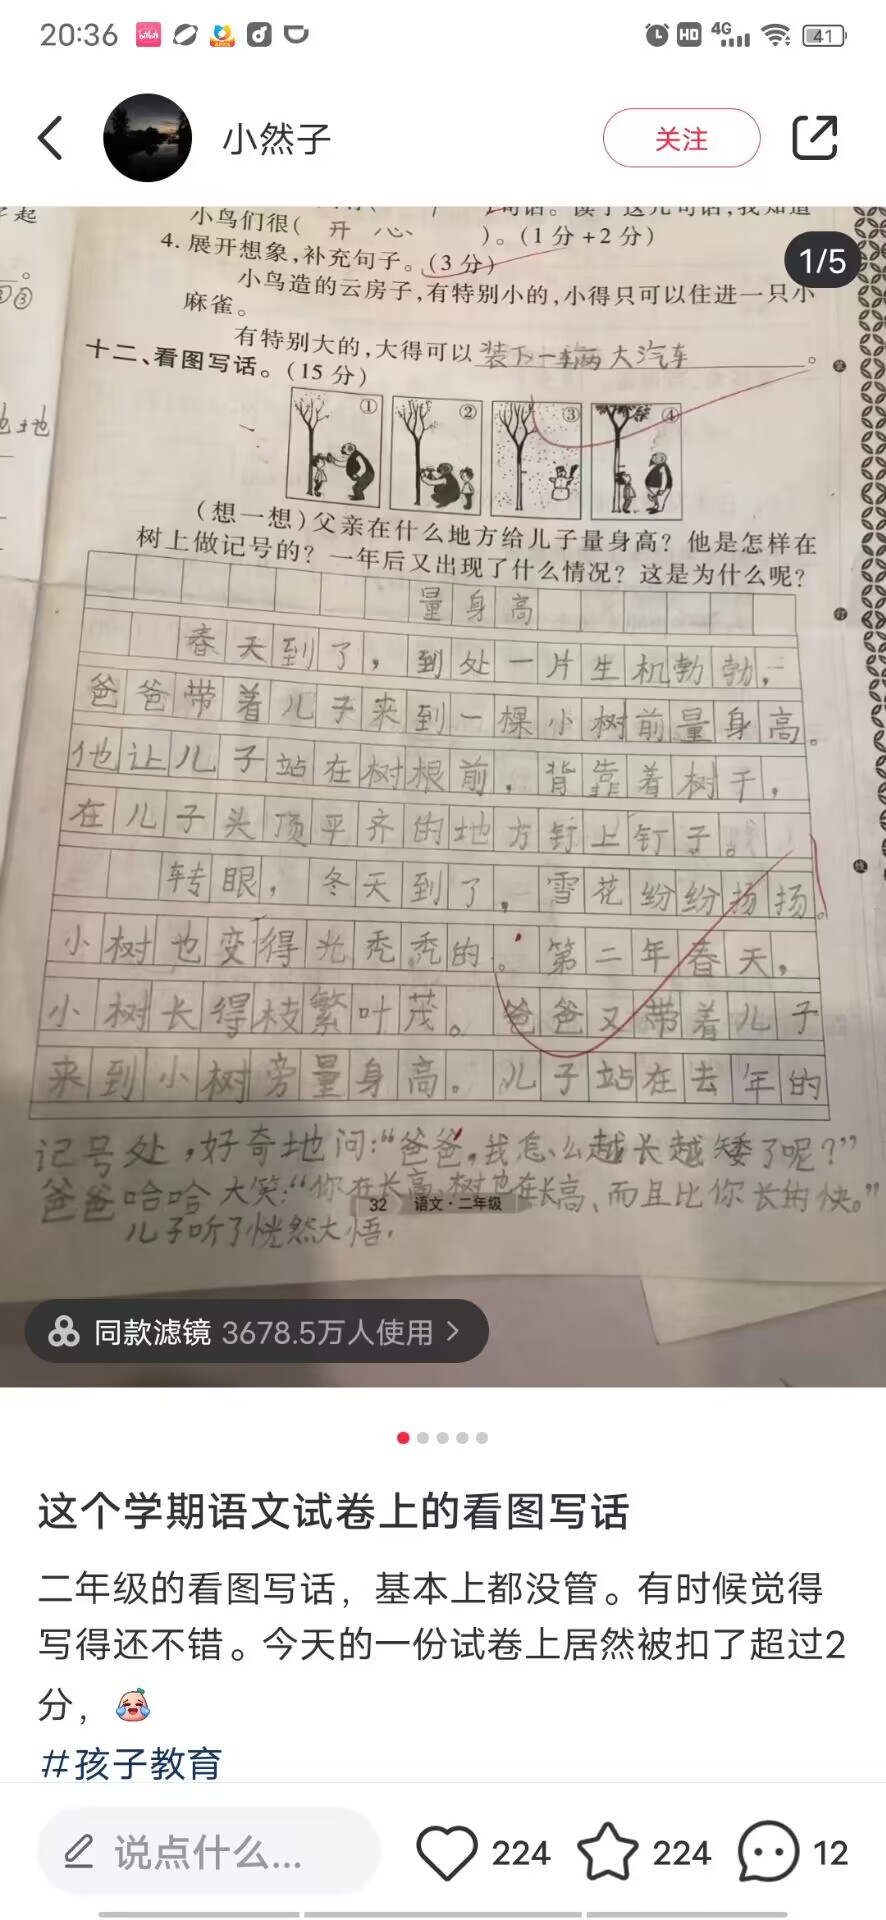 20:36
HD 4G 41
小然子
关注
1/5
字起
小鸟们很( 开心 )。(1分+2分)
4. 展开想象,补充句子。(3分)
小鸟造的云房子,有特别小的,小得只可以住进一只小
麻雀。
有特别大的,大得可以装下一辆大汽车。
十二、看图写话。(15分)
① ② ③ ④
(想一想)父亲在什么地方给儿子量身高?他是怎样在
树上做记号的?一年后又出现了什么情况?这是为什么呢?
量身高
春天到了,到处一片生机勃勃,
爸爸带着儿子来到一棵小树前量身高。
他让儿子站在树根前,背靠着树干,
在儿子头顶平齐的地方钉上钉子。
转眼,冬天到了,雪花纷纷扬扬。
小树也变得光秃秃的。第二年春天,
小树长得枝繁叶茂。爸爸又带着儿子
来到小树旁量身高。儿子站在去年的
记号处,好奇地问:“爸爸,我怎么越长越矮了呢?”
爸爸哈哈大笑:“你在长高、树也在长高、而且比你长的快。”
32 语文·二年级
儿子听了恍然大悟.
同款滤镜 3678.5万人使用
这个学期语文试卷上的看图写话
二年级的看图写话，基本上都没管。有时候觉得
写得还不错。今天的一份试卷上居然被扣了超过2
分，
#孩子教育
说点什么...
224
224
12